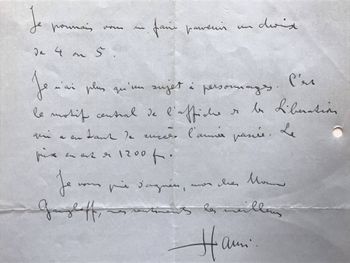 Je pourrais vous en faire parvenir un choix
de 4 ou 5.
Je n'ai plus qu'un sujet à personnages. C'est
le motif central de l'affiche de la Libération
qui a eu tant de succès l'année passée. Le
prix en est de 1200 frs.
Je vous prie d'agréer, mon cher Monsieur
mes sentiments les meilleurs
Hansi.